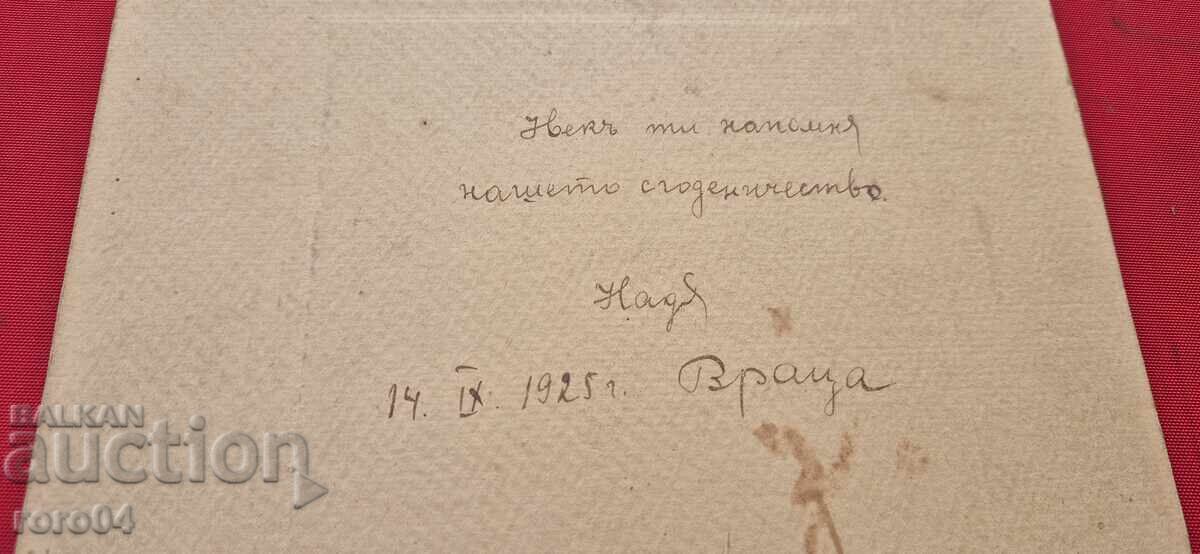 Некъ ти напомня
нашето сгоденичество.
Надя
14. IX. 1925 г. Враца
BALKAN
auction
roro04